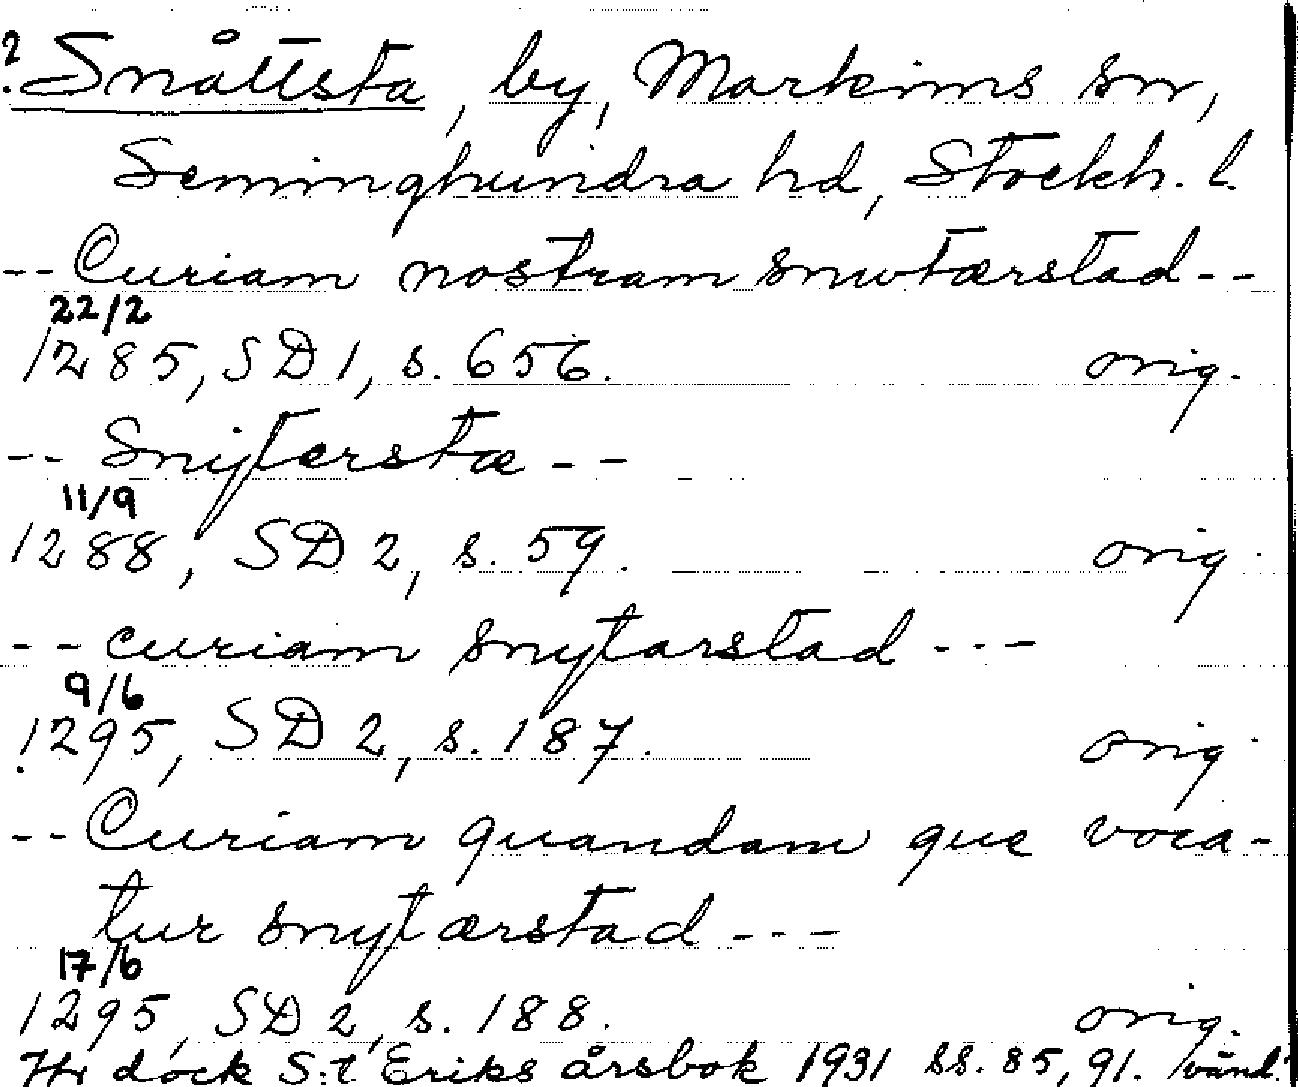 ? Snåttsta, by, Markims sn,
Seminghundra hd, Stockh. l.
-- Curiam nostram snwtærstad --
22/2
1285, SD 1, s. 656. orig.
-- Snijterstæ --
11/9
1288, SD 2, s. 59. orig.
-- curiam snytarstad ---
9/6
1295, SD 2, s. 187. orig.
-- Curiam quandam que voca-
tur snytærstad ---
17/6
1295, SD 2, s. 188. orig.
dock S:t Eriks årsbok 1931 ss. 85, 91. /vänd!